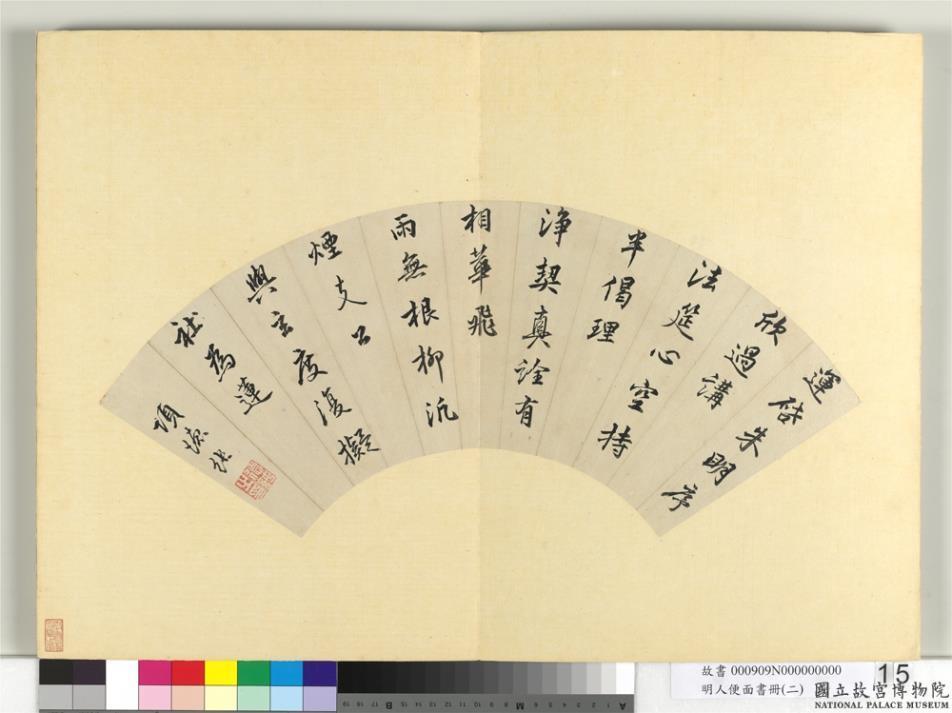 運啓朱明序
欣過講
法筵心空持
半偈理
淨契真詮有
相華飛
雨無根柳汎
煙支公
與玄度復擬
社為蓮
項德
故書 000909N000000000
明人便面書冊(二)
15
國立故宮博物院
NATIONAL PALACE MUSEUM